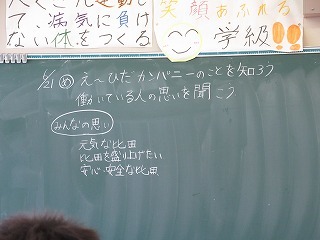 て、病気に負け
ない体をつくる
笑顔あふれる
学級!!
6/21 め え～ひだカンパニーのことを知ろう
働いている人の思いを聞こう
みんなの思い
元気な比田
比田を盛り上げたい
安心・安全な比田